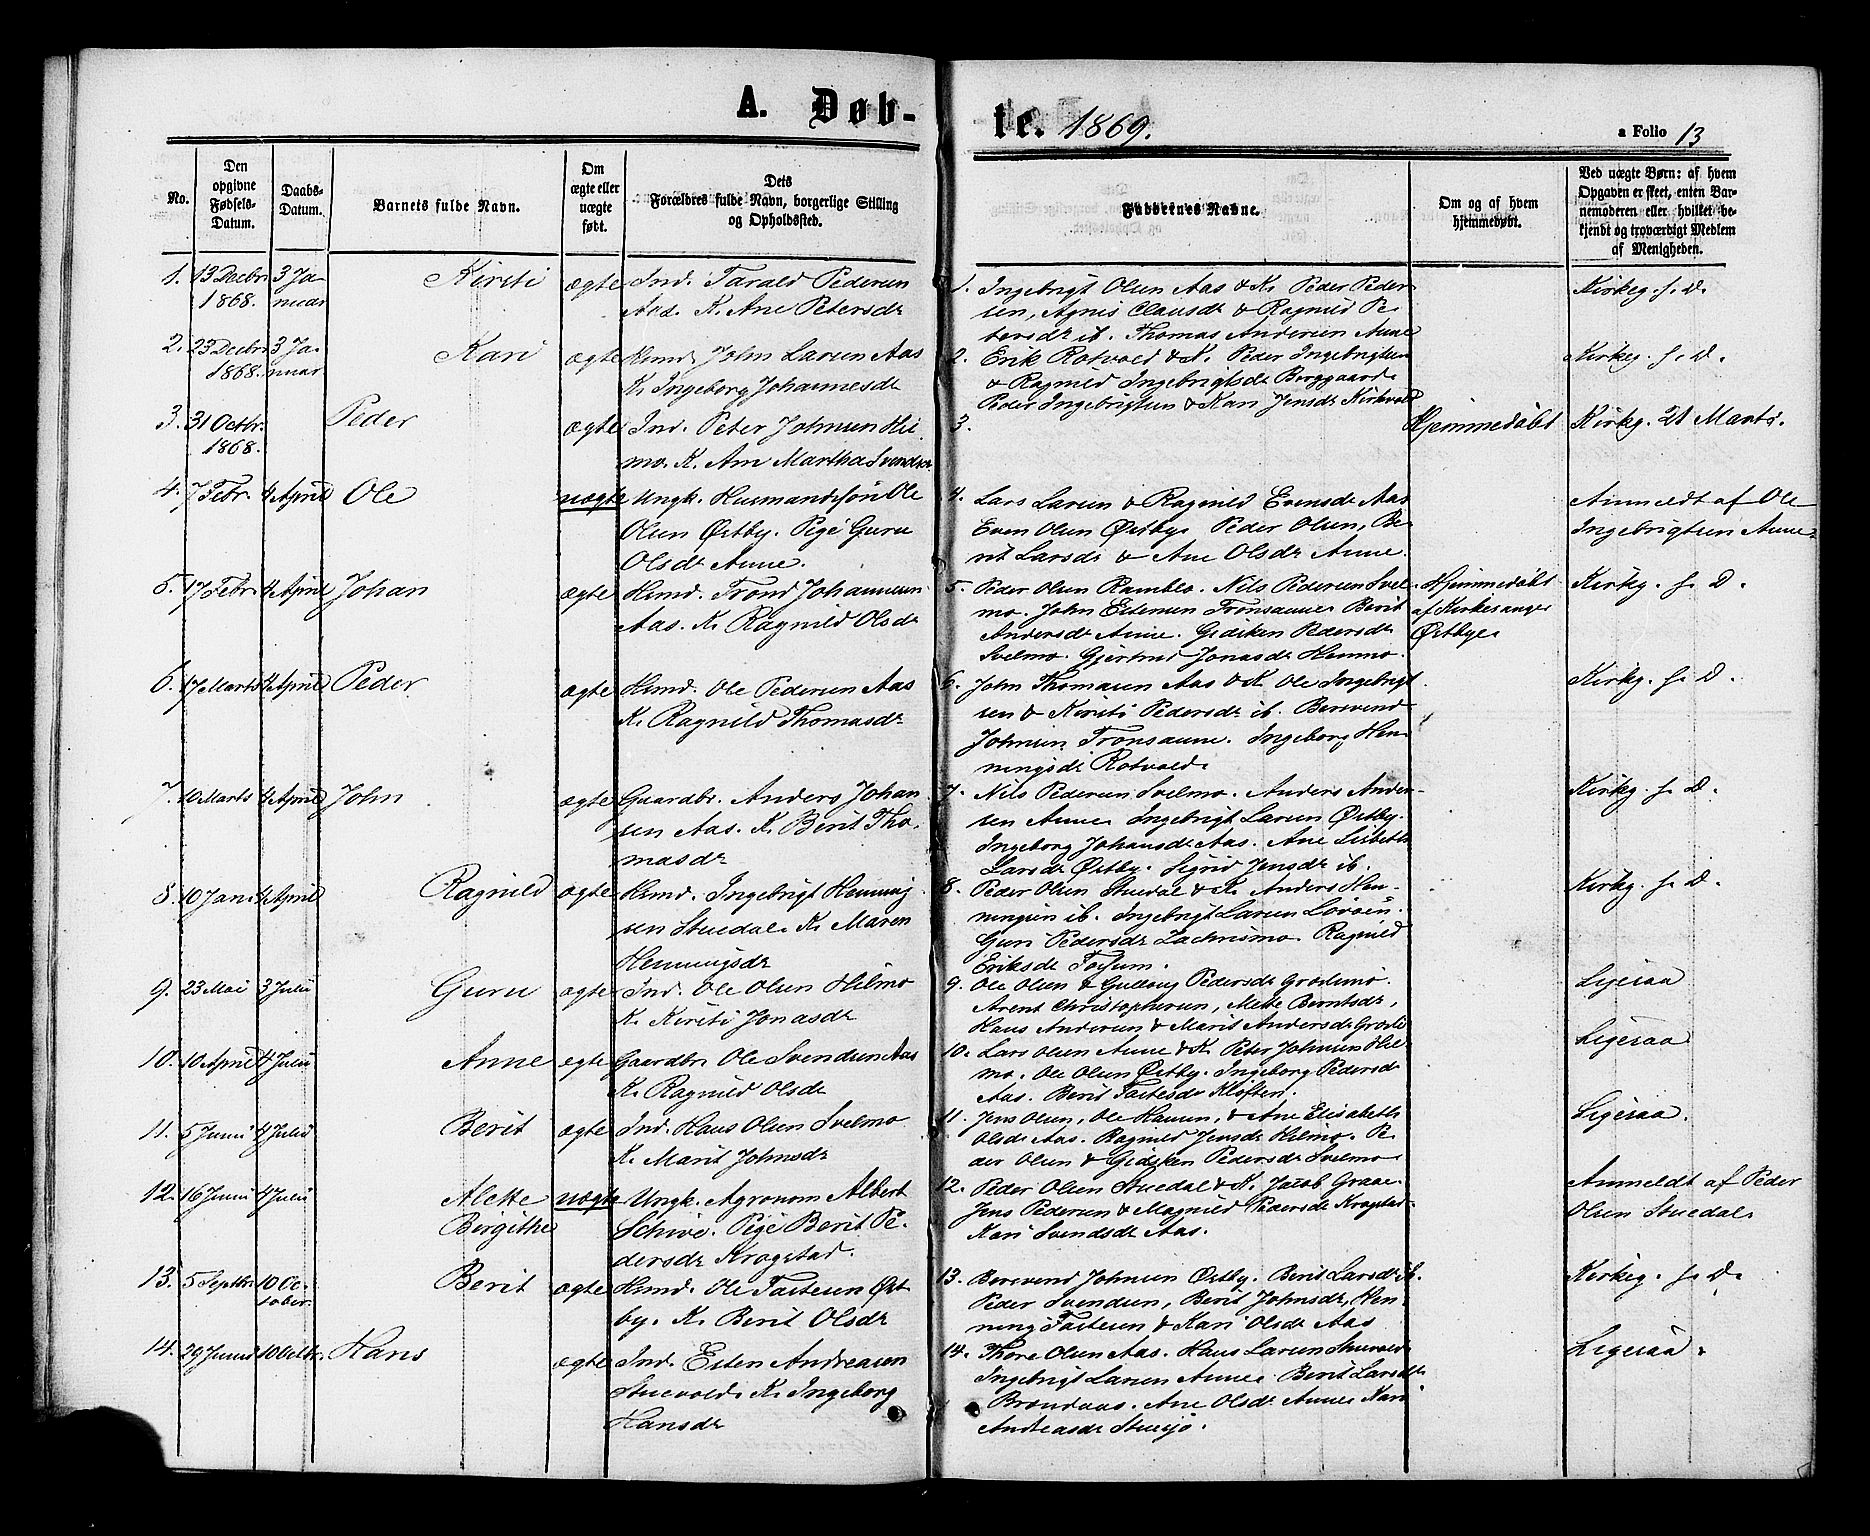 A. Døb-
te. 1869.
a Folio 13
No.
Den opgivne Fødsels-Datum.
Daabs-Datum.
Barnets fulde Navn.
Om ægte eller uægte født.
Dets Forældres fulde Navn, borgerlige Stilling og Opholdssted.
Faddernes Navne.
Om og af hvem hjemmedøbt.
Ved uægte Børn: af hvem Opgaven er skeet, enten Barnemoderen eller hvilket bekjendt og troværdigt Medlem af Menigheden.
1. 13 Decbr 1868. 3 Januar Kirsti ægte Ind. Tarald Pedersen
Aas. K. Ane Petersdr
1. Ingebrigt Olsen Aas & K. Peder Peder-
sen, Agnis Clausdr & Ragnild Pe-
tersdr ib. Thomas Andersen Aune
Kirkeg. s. D.
2. 23 Decbr 1868. 3 Januar Kari ægte Husmd. John Larsen Aas
K. Ingeborg Johannesdr
2. Erik Rotvold & K. Peder Ingebrigtsen
& Ragnild Ingebrigtsdr Borggaard.
Peder Ingebrigtsen & Kari Jensdr Kirkvold
Kirkeg. s. D.
3. 31 Octbr. 1868. Peder ægte Ind. Peter Johnsen Hil-
mo. K. Ane Martha Svendsdr
3.
Hjemmedøbt
Kirkg. 21 Marts.
4. 7 Febr. 4 April Ole uægte Ungk. Husmandssøn Ole
Olsen Østby. Pige Guru
Olsdr Aune.
4. Lars Larsen & Ragnild Evensdr Aas
Even Olsen Østby. Peder Olsen, Be-
rit Larsdr & Ane Olsdr Aune.
Anmeldt af Ole
Ingebrigtsen Aune
5. 17 Febr. 4 April Johan ægte Husmd. Trond Johannesen
Aas. K. Ragnild Olsdr
5. Peder Olsen Ramblo. Nils Pedersen Svel-
mo. John Estensen Tronsaune. Berit
Andersdr Aune. Gidsken Pedersdr
Svelmo. Gjertrud Jonasdr Hemmo.
Hjemmedøbt
af Kirkesanger
Østbye.
Kirkg. s. D.
6. 17 Marts 4 April Peder ægte Husmd. Ole Pedersen Aas
K. Ragnild Thomasdr
6. John Thomasen Aas & K. Ole Ingebrigt-
sen & Kirsti Pedersdr ib. Bersvend
Johnsen Tronsaune. Ingeborg Hen-
ningsdr Rotvold.
Kirkg. s. D.
7. 10 Marts 4 April John ægte Gaardbr. Anders Johan-
sen Aas. K. Berit Tho-
masdr
7. Nils Pedersen Svelmo. Anders Ander-
sen Aune. Ingebrigt Larsen Østby.
Ingeborg Johansdr Aas. Ane Lisbeth
Larsdr Østby. Sigrid Jensdr ib.
Kirkg. s. D.
8. 10 Jan. 4 April Ragnild ægte Husmd. Ingebrigt Henning-
sen Stuedal. K. Maren
Henningsdr
8. Peder Olsen Stuedal & K. Anders Hen-
ningsen ib. Ingebrigt Larsen Løvøen.
Guri Pedersdr Zachrismo. Ragnild
Eriksdr Fossum.
Kirkg. s. D.
9. 23 Mai 3 Julii Guru ægte Ind. Ole Olsen Hilmo
K. Kirsti Jonasdr
9. Ole Olsen & Gulloug Pedersdr Grødsmo.
Arent Christophersen, Mette Berntsdr,
Hans Andersen & Marit Andersdr
Ligesaa
10. 10 April 4 Julii Anne ægte Gaardbr. Ole Svendsen Aas
K. Ragnild Olsdr
10. Lars Olsen Aune & K. Peter Johnsen Hil-
mo. Ole Olsen Østby. Ingeborg Pedersdr
Aas. Berit Tastesdr Kløften.
Ligesaa
11. 5 Junii 4 Julii Berit ægte Ind. Hans Olsen Svelmo
K. Marit Johnsdr
11. Jens Olsen, Ole Hansen, & Ane Elisabeth
Olsdr Aas. Ragnild Jensdr Hilmo. Pe-
der Olsen & Gidsken Pedersdr Svelmo.
Ligesaa.
12. 16 Junii 4 Julii Alette Bergithe uægte Ungk. Agronom Albert
Schive. Pige Berit Pe-
dersdr Krogstad.
12. Peder Olsen Stuedal & K. Jacob Graae.
Jens Pedersen & Magnild Pedersdr Krogstad.
Kari Svendsdr Aas.
Anmeldt af Peder
Olsen Stuedal.
13. 5 Septbr. 10 October. Berit ægte Husmd. Ole Tastesen Øst-
by. K. Berit Olsdr
13. Bersvend Johnsen Østby. Berit Larsdr ib.
Peder Svendsen, Berit Johnsdr, Hen-
ning Tastesen & Kari Olsdr Aas
Kirkeg. s. D.
14. 29 Junii 10 Octbr. Hans ægte Ind. Esten Andreasen
Stuevold. K. Ingeborg
Hansdr
14. Thore Olsen Aas. Hans Larsen Stuevold.
Ingebrigt Larsen Aune. Berit Larsdr
Brændaas. Ane Olsdr Aune. Kari
Andreasdr Stuesjø.
Ligesaa.